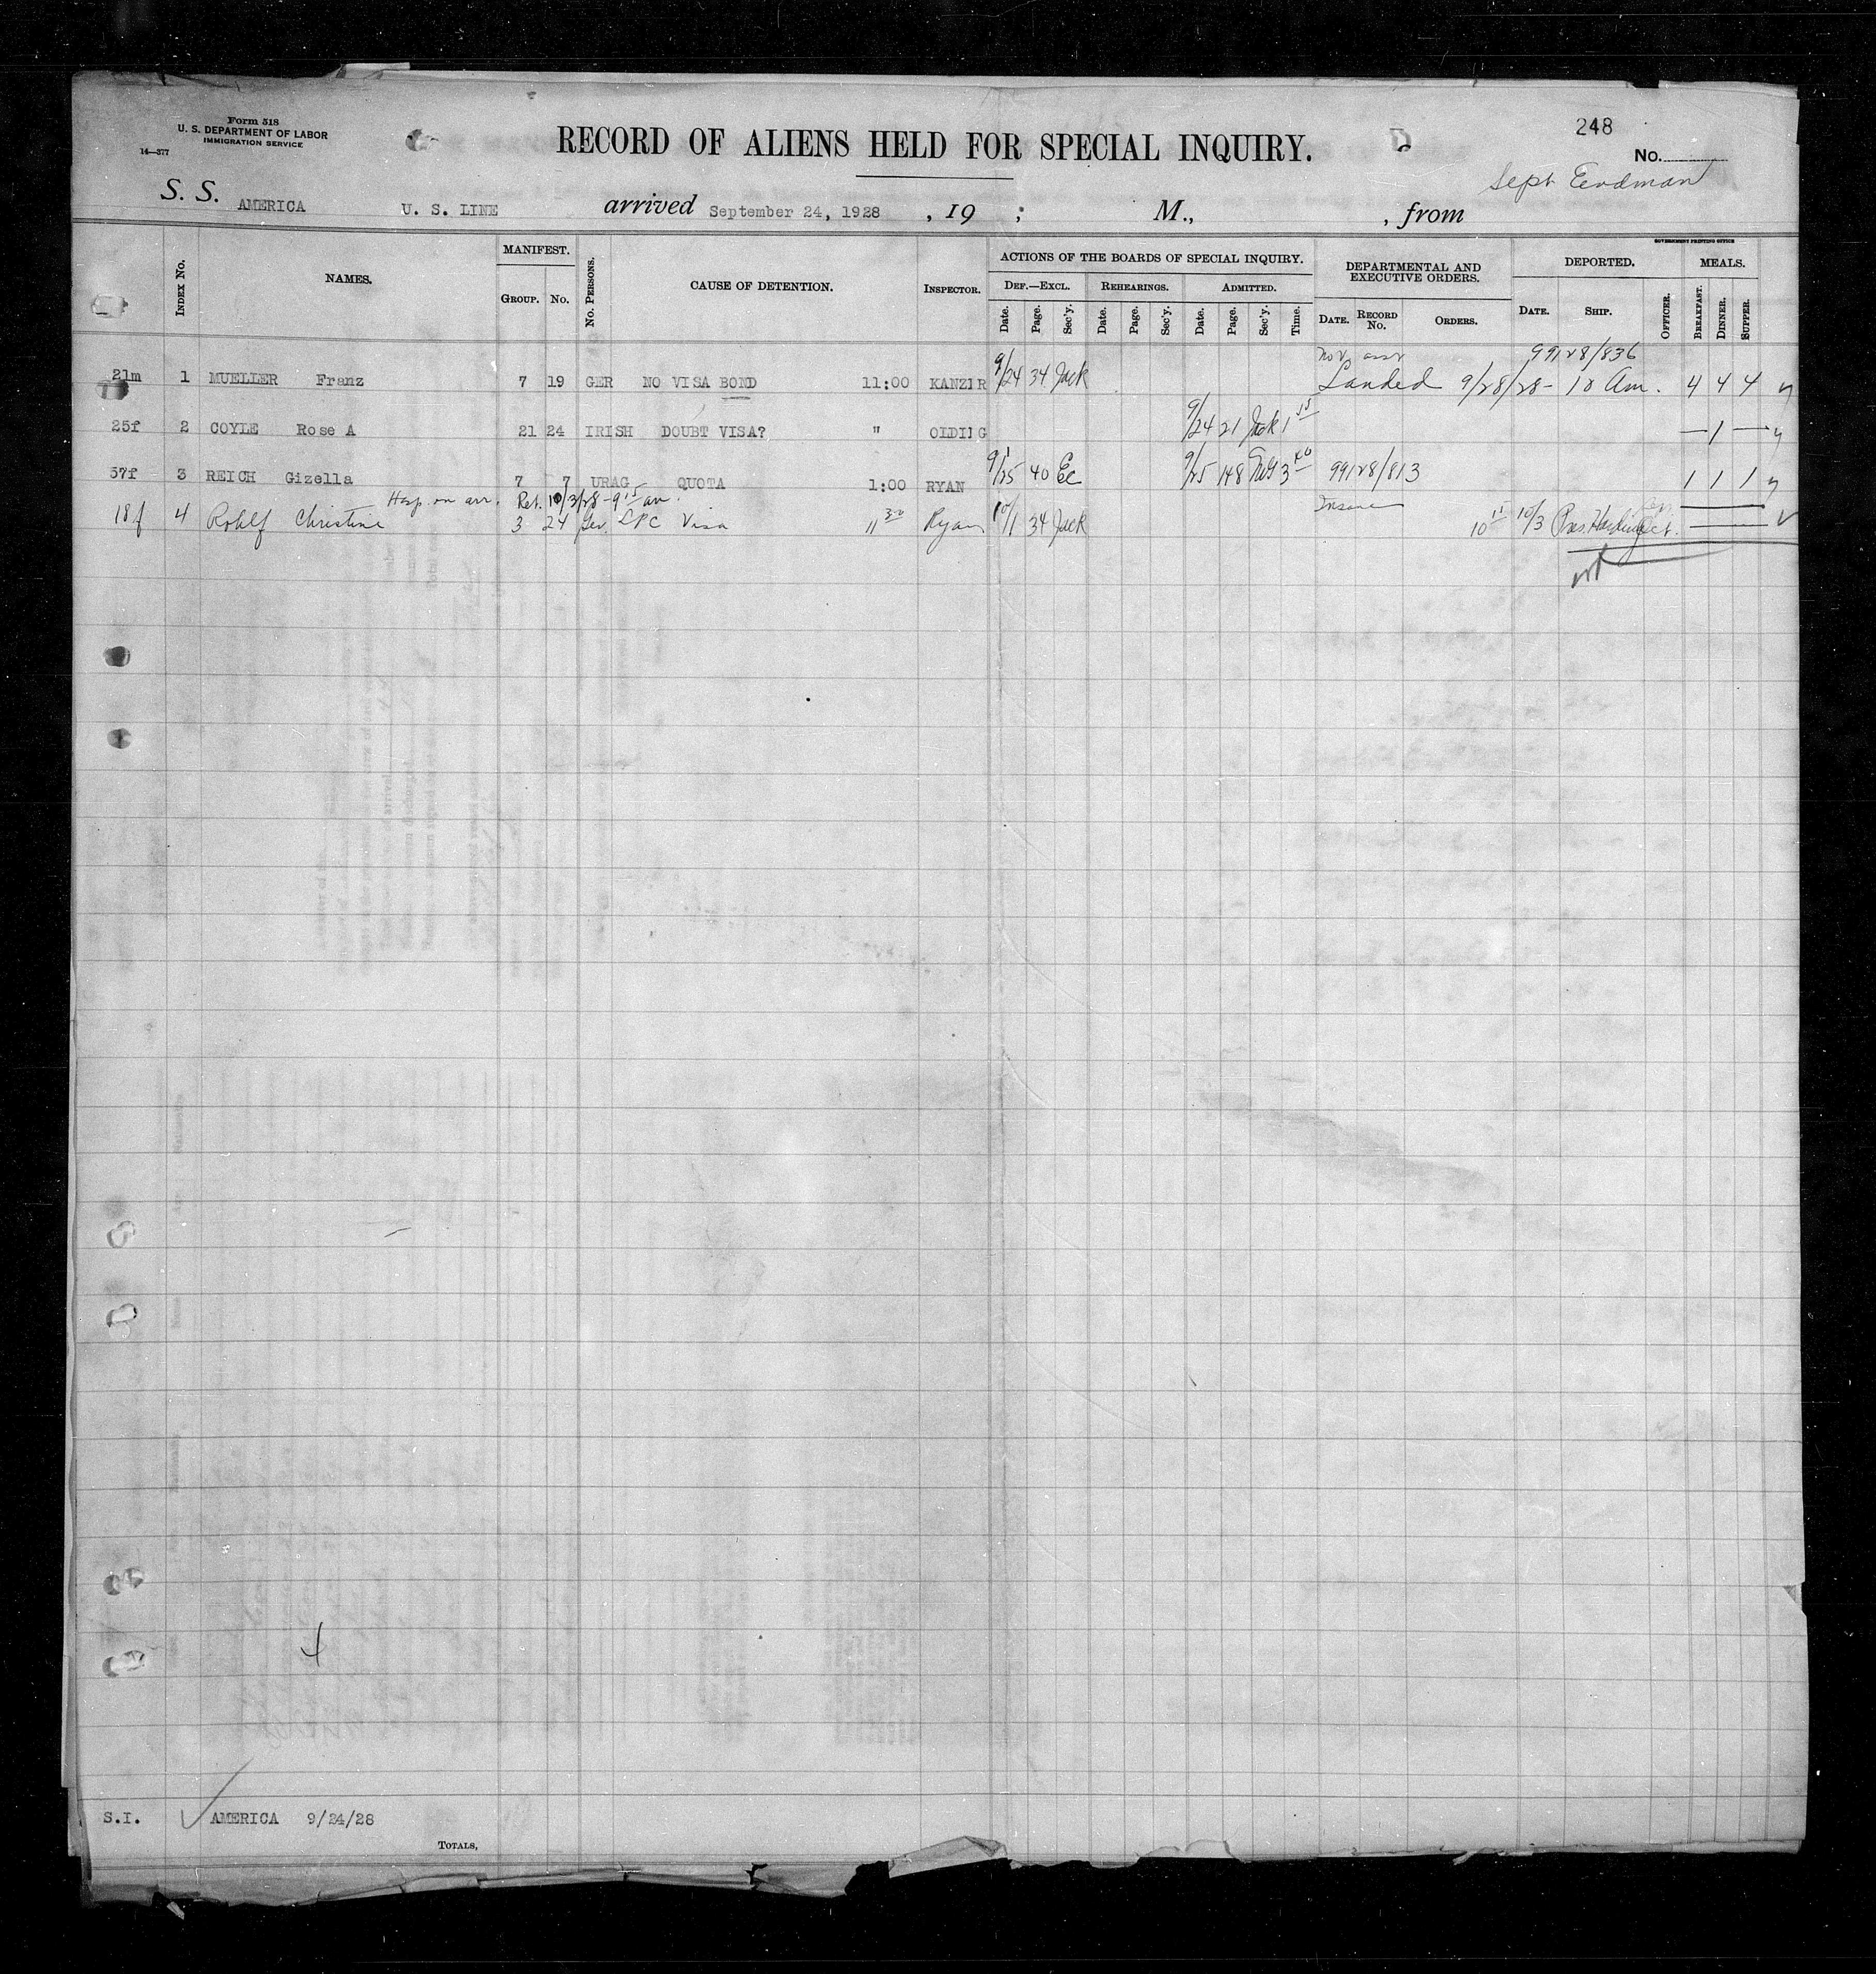 Form 518
U. S. DEPARTMENT OF LABOR
IMMIGRATION SERVICE
14—377
RECORD OF ALIENS HELD FOR SPECIAL INQUIRY.
248
No.
S. S. AMERICA U. S. LINE arrived September 24, 1928 , 19 ; M., , from
GOVERNMENT PRINTING OFFICE
Index No. NAMES. MANIFEST. Group. No. No. Persons. CAUSE OF DETENTION. Inspector. ACTIONS OF THE BOARDS OF SPECIAL INQUIRY. Def.—Excl. Date. Page. Sec'y. Rehearings. Date. Page. Sec'y. Admitted. Date. Page. Sec'y. Time. DEPARTMENTAL AND EXECUTIVE ORDERS. Date. Record No. Orders. DEPORTED. Date. Ship. Officer. MEALS. Breakfast. Dinner. Supper.
99128/836
21m 1 MUELLER Franz 7 19 GER NO VISA BOND 11:00 KANZIR 9/24 34 Jack Landed 9/28/28 - 10 Am. 4 4 4
25f 2 COYLE Rose A 21 24 IRISH DOUBT VISA? " OLDING 9/24 21 Jack 1 15 — 1 —
37f 3 REICH Gizella 7 7 URAG QUOTA 1:00 RYAN 9/25 40 Ec 9/25 148 3 40 99128/813 1 1 1
Hosp. on arr. Ret. 10/3/28 - 9 15 am. Insane
18f 4 Rohlf Christine 3 24 Ger. LPC Visa 11 30 Ryan 10/1 34 Jack 10 15 10/3 Pres. Harding
4
S.I. AMERICA 9/24/28
Totals,